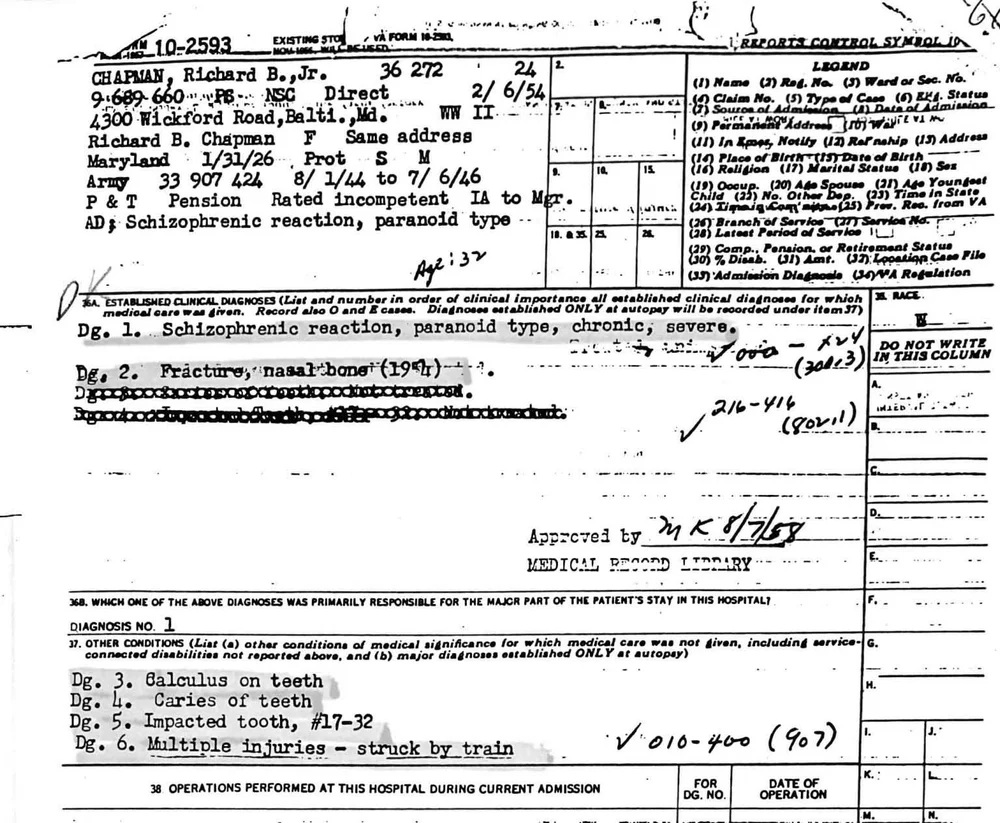 10-2593
EXISTING STO VA FORM 10-2593,
REPORTS CONTROL SYMBOL 10
CHAPMAN, Richard B.,Jr. 36 272 24
9 689 660 PS NSC Direct 2/ 6/54
4300 Wickford Road,Balti.,Md. WW II
Richard B. Chapman F Same address
Maryland 1/31/26 Prot S M
Army 33 907 424 8/ 1/44 to 7/ 6/46
P & T Pension Rated incompetent IA to Mgr.
AD; Schizophrenic reaction, paranoid type
Age: 32
2.
9.
10.
15.
18. & 35.
25.
26.
LEGEND
(1) Name (2) Reg. No. (3) Ward or Sec. No.
(4) Claim No. (5) Type of Case (6) Status
(7) Source of Admission (8) Date of Admission
(9) Permanent Address (10) War
(11) In Emer. Notify (12) Rel'nship (13) Address
(14) Place of Birth (15) Date of Birth
(16) Religion (17) Marital Status (18) Sex
(19) Occup. (20) Age Spouse (21) Age Youngest
Child (22) No. Other Dep. (23) Time in State
(25) Prev. Rec. from VA
(26) Branch of Service (27) Service No.
(28) Latest Period of Service
(29) Comp., Pension, or Retirement Status
(30) % Disab. (31) Amt. (32) Location Case File
(33) Admission Diagnosis (34) VA Regulation
36A. ESTABLISHED CLINICAL DIAGNOSES (List and number in order of clinical importance all established clinical diagnoses for which
medical care was given. Record also O and E cases. Diagnoses established ONLY at autopsy will be recorded under item 37)
RACE
W
Dg. 1. Schizophrenic reaction, paranoid type, chronic, severe.
000 - x24
(300.3)
DO NOT WRITE
IN THIS COLUMN
Dg. 2. Fracture, nasal bone (1954).
216-416
(802.1)
A.
B.
C.
D.
Approved by MK 8/7/58
MEDICAL RECORD LIBRARY
E.
36B. WHICH ONE OF THE ABOVE DIAGNOSES WAS PRIMARILY RESPONSIBLE FOR THE MAJOR PART OF THE PATIENT'S STAY IN THIS HOSPITAL?
F.
DIAGNOSIS NO. 1
37. OTHER CONDITIONS (List (a) other conditions of medical significance for which medical care was not given, including service-
connected disabilities not reported above, and (b) major diagnoses established ONLY at autopsy)
G.
Dg. 3. Calculus on teeth
H.
Dg. 4. Caries of teeth
Dg. 5. Impacted tooth, #17-32
I.
J.
Dg. 6. Multiple injuries - struck by train ✓ 010-400 (907)
38 OPERATIONS PERFORMED AT THIS HOSPITAL DURING CURRENT ADMISSION
FOR
DG. NO.
DATE OF
OPERATION
K.
L.
M.
N.